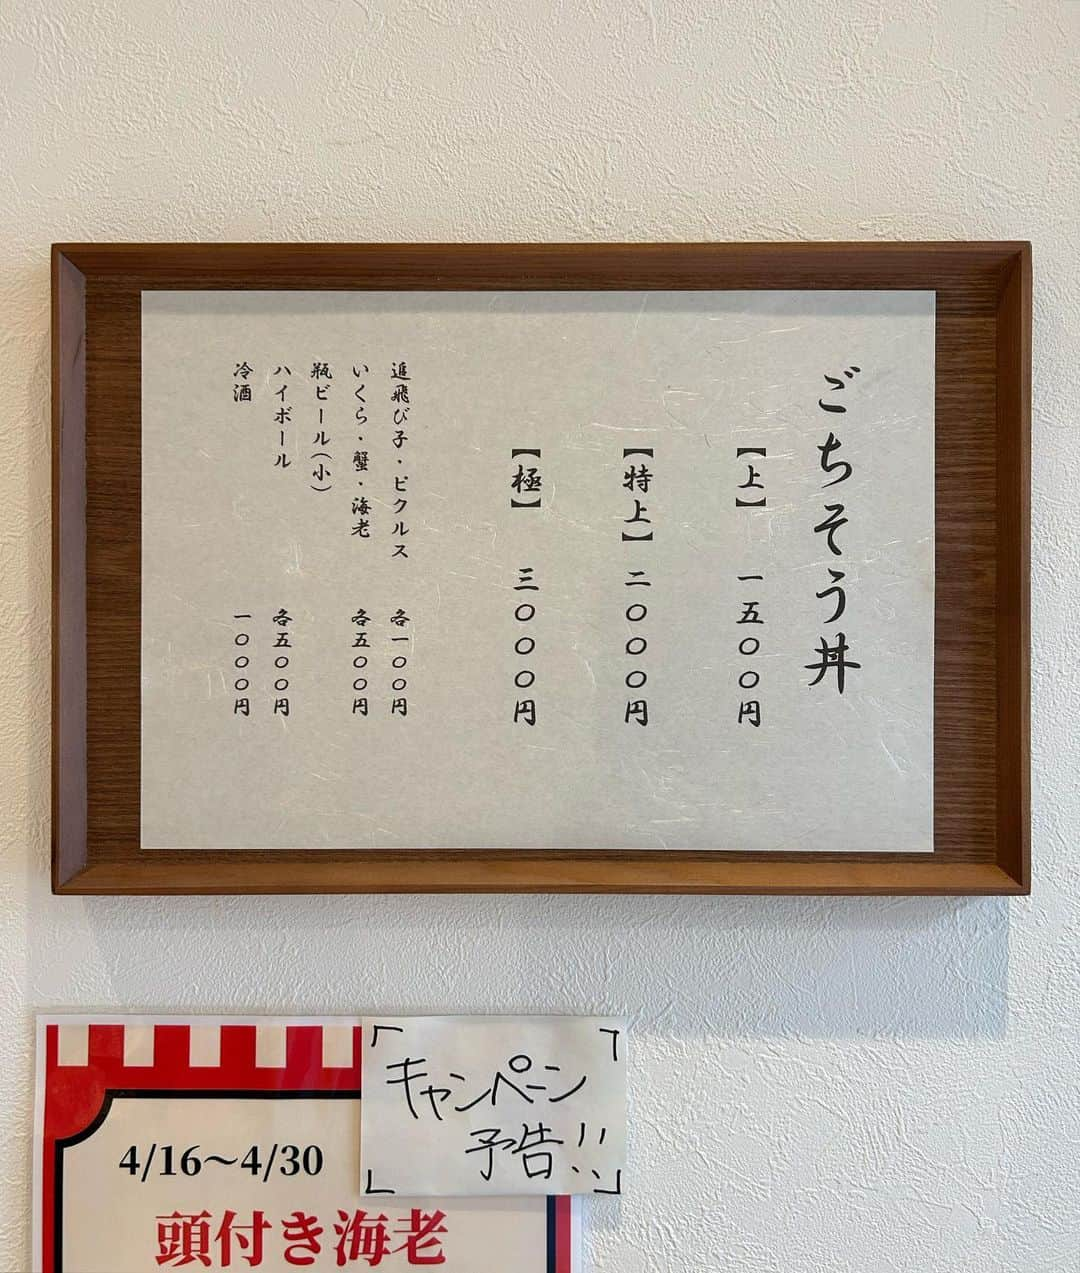 ごちそう丼
【上】 一五〇〇円
【特上】 二〇〇〇円
【極】 三〇〇〇円
追飛び子・ピクルス 各一〇〇円
いくら・蟹・海老 各五〇〇円
瓶ビール(小)
ハイボール 各五〇〇円
冷酒 一〇〇〇円
「キャンペーン
予告!!」
4/16〜4/30
頭付き海老